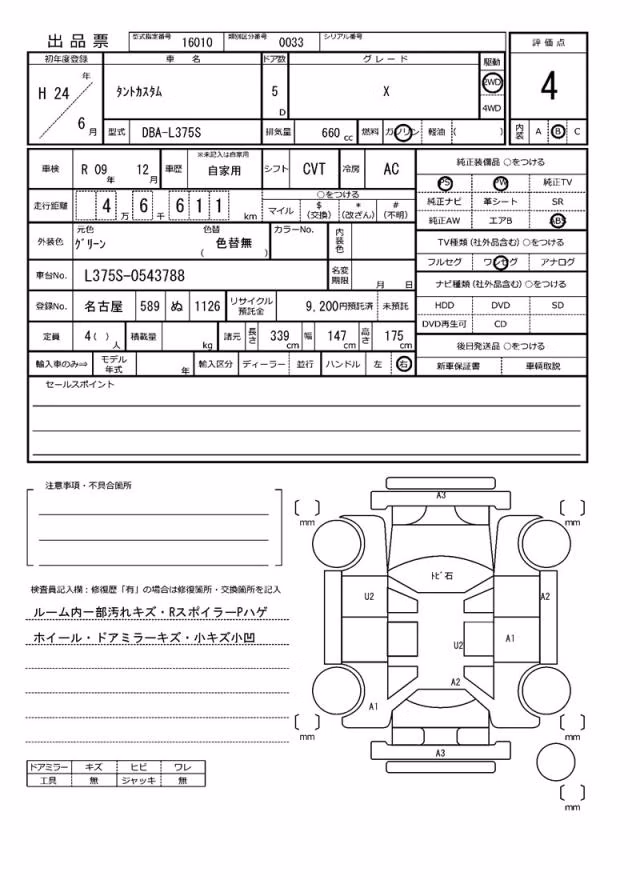 出品票 型式指定番号 16010 類別区分番号 0033 シリアル番号
初年度登録 車名 ドア数 グレード 駆動 評価点
H 24 年 6 月 タントカスタム 5 D X 2WD 4WD 4
型式 DBA-L375S 排気量 660 cc 燃料 ガソリン 軽油 ( ) 内装 A B C
車検 R 09 年 12 月 車歴 ※未記入は自家用 自家用 シフト CVT 冷房 AC
純正装備品 ○をつける
PS PW 純正TV
走行距離 4 万 6 千 6 1 1 km ○をつける
マイル $ (交換) * (改ざん) # (不明)
純正ナビ 革シート SR
純正AW エアB ABS
外装色 元色 グリーン 色替 ( 色替無 ) カラーNo. 内装色
TV種類 (社外品含む) ○をつける
フルセグ ワンセグ アナログ
車台No. L375S-0543788 名変期限 月 日
ナビ種類 (社外品含む) ○をつける
登録No. 名古屋 589 ぬ 1126 リサイクル預託金 9,200円預託済 未預託
HDD DVD SD
DVD再生可 CD
定員 4 ( ) 人 積載量 kg 諸元 長さ 339 cm 幅 147 cm 高さ 175 cm
後日発送品 ○をつける
輸入車のみ⇒ モデル年式 年 輸入区分 ディーラー 並行 ハンドル 左 右
新車保証書 車輌取説
セールスポイント
注意事項・不具合箇所
検査員記入欄:修復歴「有」の場合は修復箇所・交換箇所を記入
ルーム内一部汚れキズ・RスポイラーPハゲ
ホイール・ドアミラーキズ・小キズ小凹
ドアミラー キズ ヒビ ワレ
工具 無 ジャッキ 無
A3
mm
mm
トビ石
U2
A2
A1
U2
A2
A1
mm
mm
A3
mm